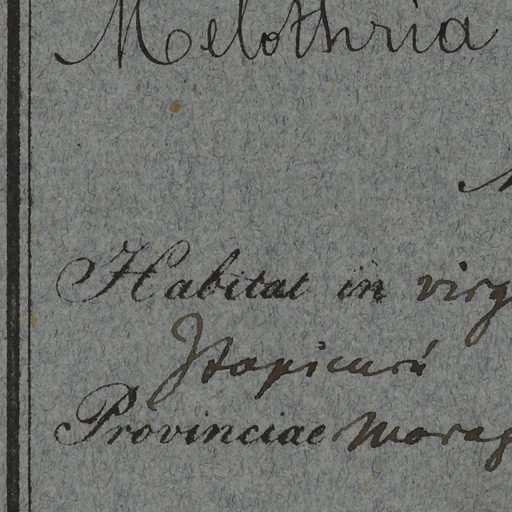 Melothria
Habitat in virg
Itapicurú
Provinciae Marag